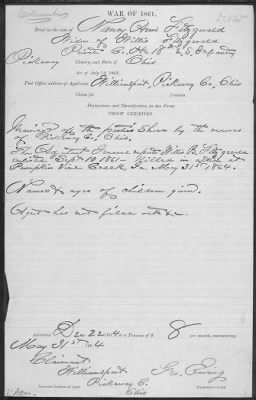 WAR OF 1861.
Brief in the case of Nancy Ann Fitzgerald
Widow of Willis Fitzgerald
Private Co. H. 18" U.S. Infantry
Pickaway County, and State of Ohio
Act of July 14, 1862.
Post Office address of Applicant, Williamsport, Pickaway Co, Ohio
Claim for
Declaration and Identification in due Form.
PROOF EXHIBITED.
Marriage of the parties shown by the records
of Pickaway Co. Ohio.
The Adjutant General reports Willis B. Fitzgerald
enlisted Sept 10, 1861 - Killed in action at
Pumpkin Vine Creek Ga. May 31st 1864.
Names & ages of children given.
Agent has not filed
Admitted Dec 22 64 to a Pension of $ 8 per month, commencing
May 31st 64
Claimant
Williamsport
Pickaway Co.
Ohio
Geo. Ewing
Examining Clerk.